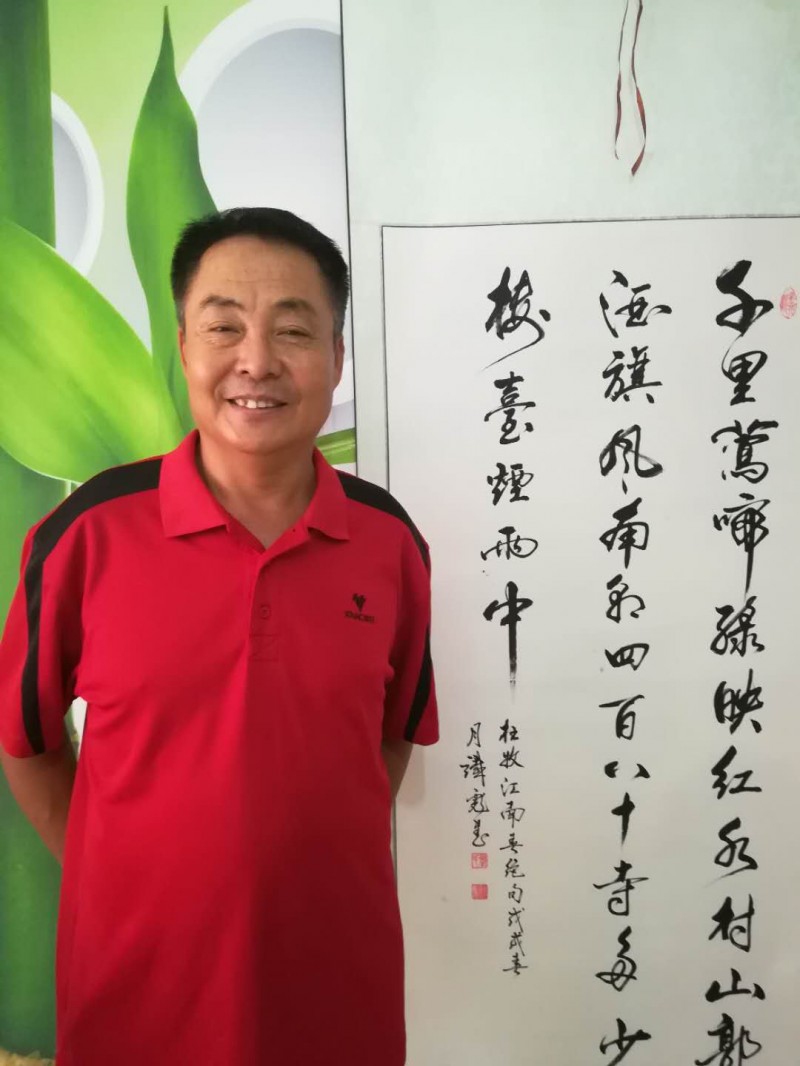 千里鶯啼緑映紅水村山郭
酒旗風南朝四百八十寺多少
楼臺煙雨中
杜牧江南春絶句戊戌春
月書